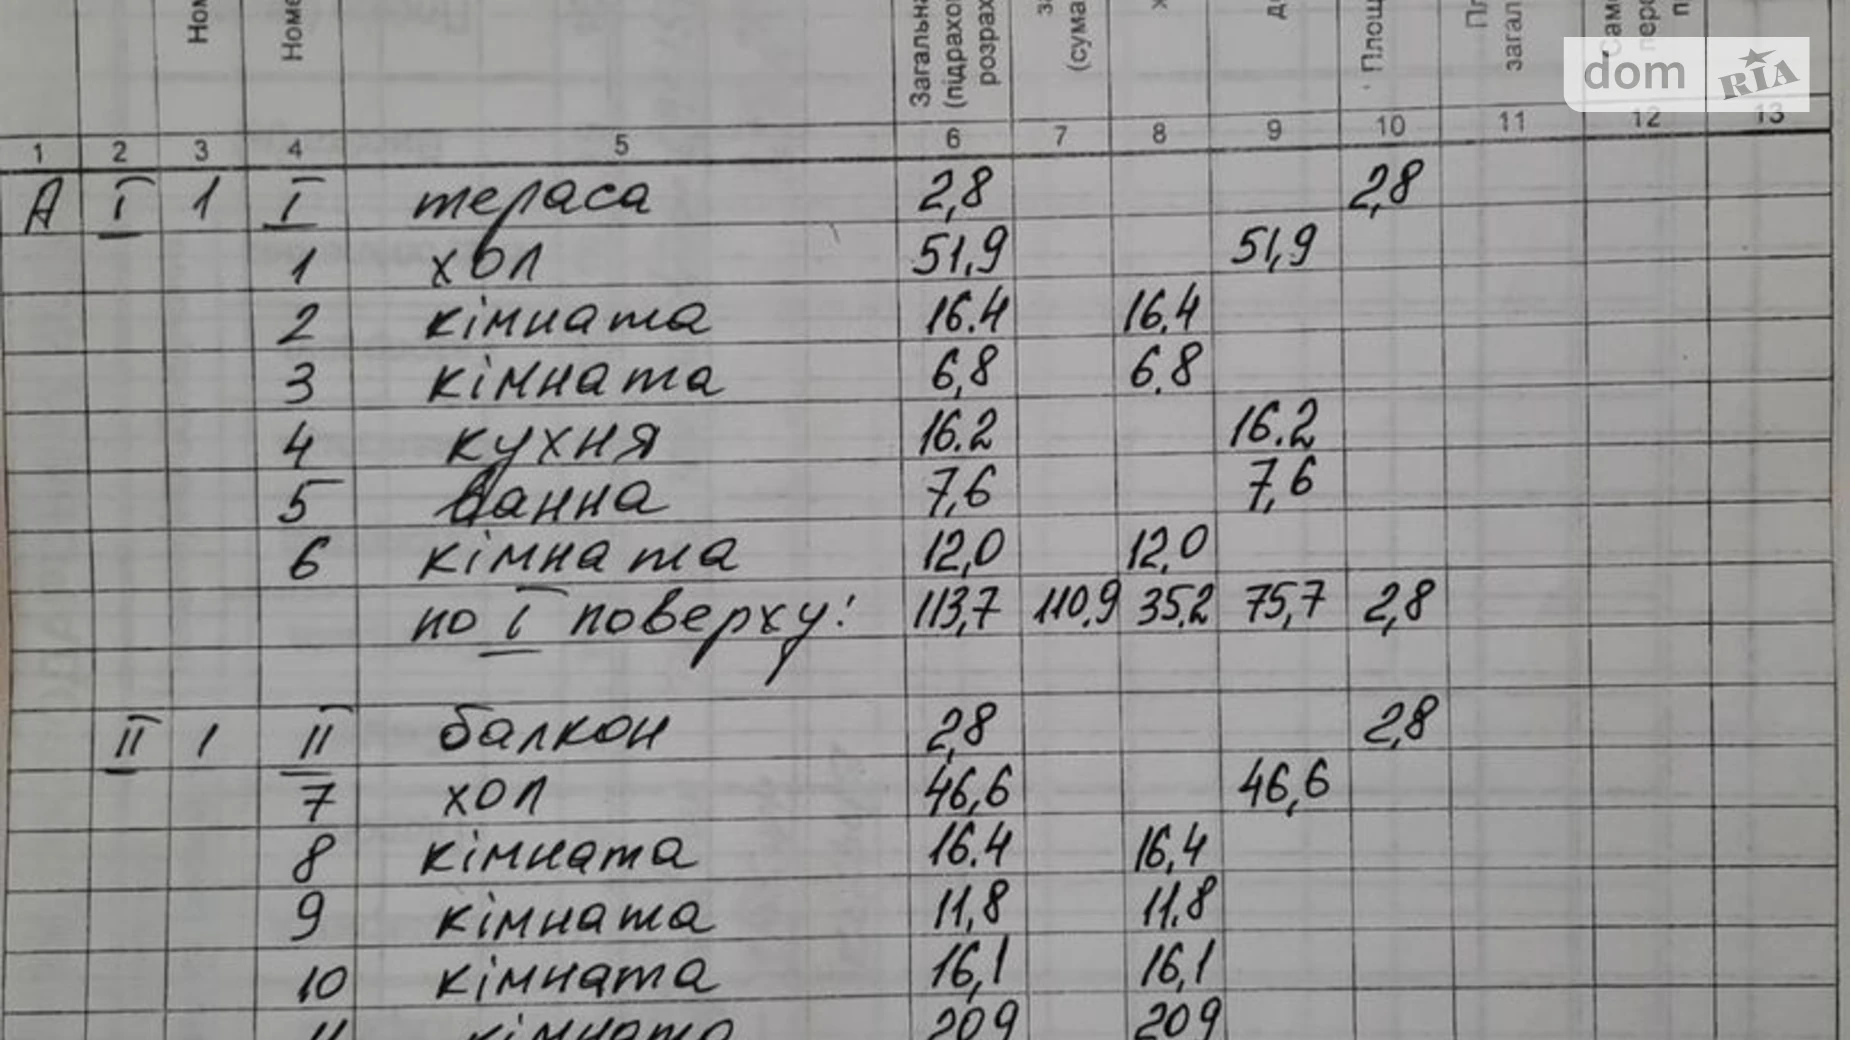 Загальна
(підрахо
розрах
(сума
Площ
загал
dom RIA
1 2 3 4 5 6 7 8 9 10 11 12 13
А I 1 I тераса 2,8 2,8
1 хол 51,9 51,9
2 кімната 16.4 16,4
3 кімната 6,8 6.8
4 кухня 16.2 16.2
5 ванна 7,6 7,6
6 кімната 12,0 12,0
по I поверху: 113,7 110,9 35,2 75,7 2,8
II 1 II балкон 2,8 2,8
7 хол 46,6 46,6
8 кімната 16.4 16,4
9 кімната 11,8 11.8
10 кімната 16,1 16,1
11 кімната 20,9 20,9